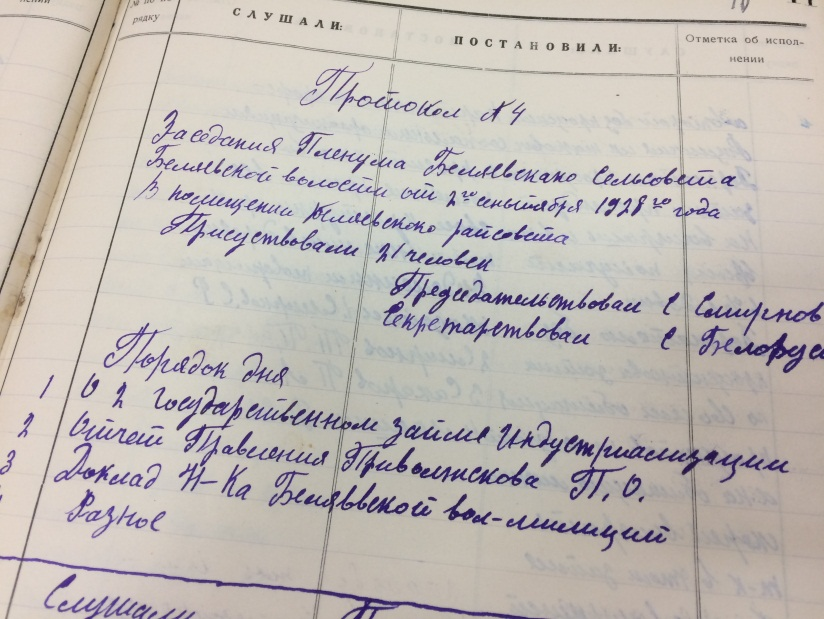 № по по-
рядку
СЛУШАЛИ:
ПОСТАНОВИЛИ:
Отметка об испол-
нении
Протокол N 4
Заседания Пленума Беляевскако Сельсовета
Беляевской волости от 2го сеньтября 1928го года
В помещении Беляевскоко райсовета
Присуствовали 21 человек
Председательствовал С Смирнов
Секретарствовал С
Порядок дня
1 О 2 Государственном займе Индустриализации
2 Отчет Правления Приволжскова П.О.
3 Доклад Н-Ка Беляввской вол-милиций
Разное
Слушали